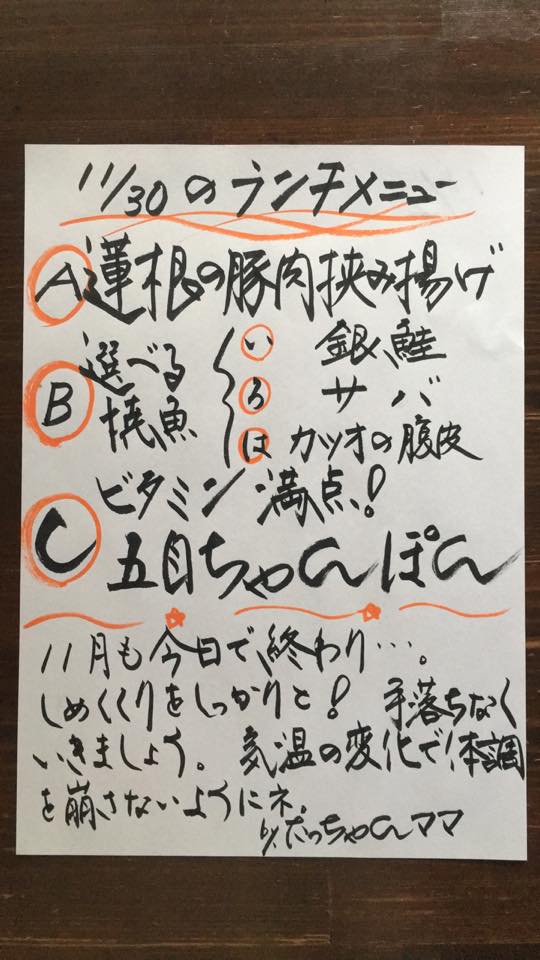 11/30のランチメニュー
A 蓮根の豚肉挟み揚げ
B 選べる焼魚
い 銀鮭
ろ サバ
は カツオの腹皮
ビタミン満点!
C 五目ちゃんぽん
11月も今日で終わり…。
しめくくりをしっかりと! 手落ちなく
いきましょう。気温の変化で体調
を崩さないようにネ。
by.たっちゃんママ